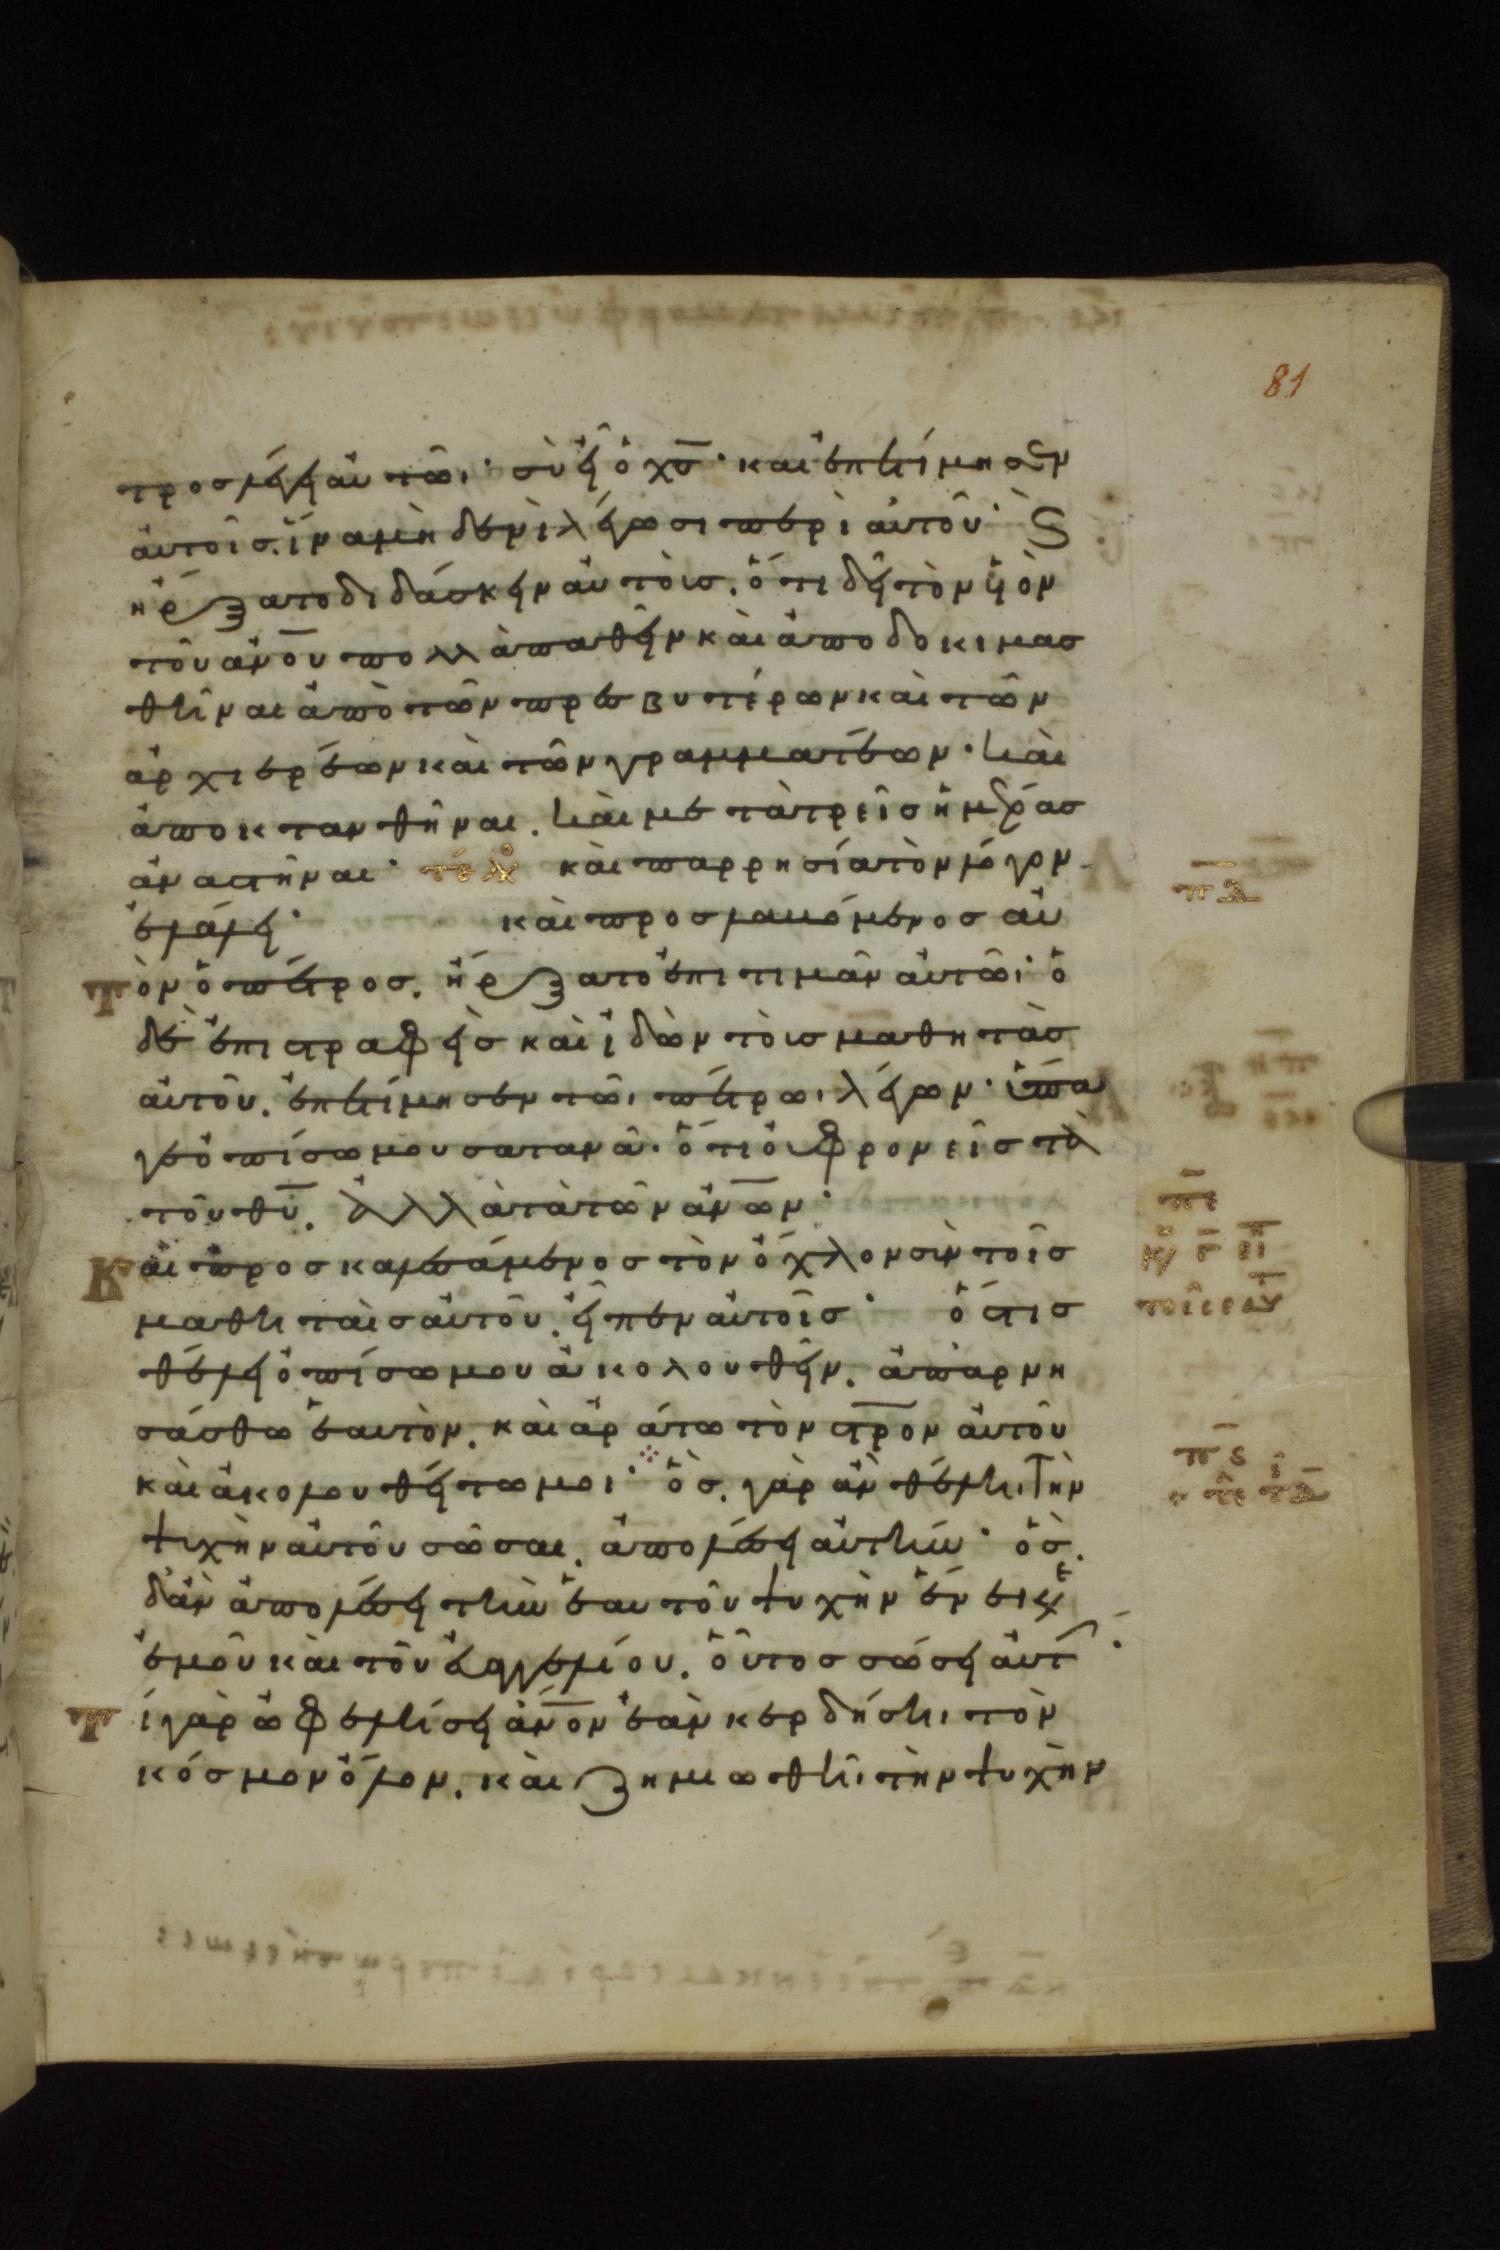 81
τρος λέγει αυτῶι· σὺ εἶ ὁ χς̅· και ἐπετίμησεν
ἀυτοῖς. ἵνα μηδενὶ λέγωσι περὶ ἀυτοῦ· Ϗ
ἤρξατο διδάσκειν ἀυτοὺς. ὅτι δεῖ τὸν υἱὸν
τοῦ ἀν̅ου πολλὰ παθεῖν καὶ ἀποδοκιμασ
θῆναι ἀπὸ τῶν πρεσβυτέρων καὶ τῶν
ἀρχιερέων καὶ τῶν γραμματέων· καὶ
ἀποκτανθῆναι. καὶ με τὰ τρεῖς ἡμέρας
ἀναστῆναι· τέλ καὶ παρρησία τὸν λόγον
ἐλάλει· καὶ προσλαβόμενος αὐ
τὸν ὁ πέτρος. ἤρξατο ἐπιτιμᾶν ἀυτῶι· ὁ
δὲ ἐπιστραφεὶς καὶ ἰδὼν τοὺς μαθητὰς
ἀυτοῦ. ἐπετίμησεν τῶι πέτρωι λέγων· ὕπα
γε ὀπίσω μου σατανᾶ· ὅτι ὀυ φρονεῖς τὰ
τοῦ θυ̅. ἀλλὰ τὰ τῶν ἀν̅ων·
Και προσκαλεσάμενος τὸν ὄχλον σὺν τοῖς
μαθηταὶς ἀυτοῦ. εἶπεν ἀυτοῖς· ὅστις
θέλει ὀπίσω μου ἀκολουθεῖν. ἀπαρνη
σάσθω ἑαυτὸν. καὶ ἀράτω τὸν στρ̅ον ἀυτοῦ
καὶ ἀκολουθείτω μοι· ὃς. γὰρ ἂν θέληι τὴν
ψυχὴν ἀυτοῦ σῶσαι. ἀπολέσει ἀυτήν· ὃς.
δ' ἂν ἀπολέσει τὴν ἑαυτοῦ ψυχὴν ἕνεκε
ἐμοῦ καὶ τοῦ ἐυαγγελίου. οὗτος σώσει ἀυτ·
Τί γὰρ ὠφελήσει ἀν̅ον ἐὰν κερδήσηι τὸν
κόσμον ὅλον. καὶ ζημιωθῆι τὴν ψυχὴν